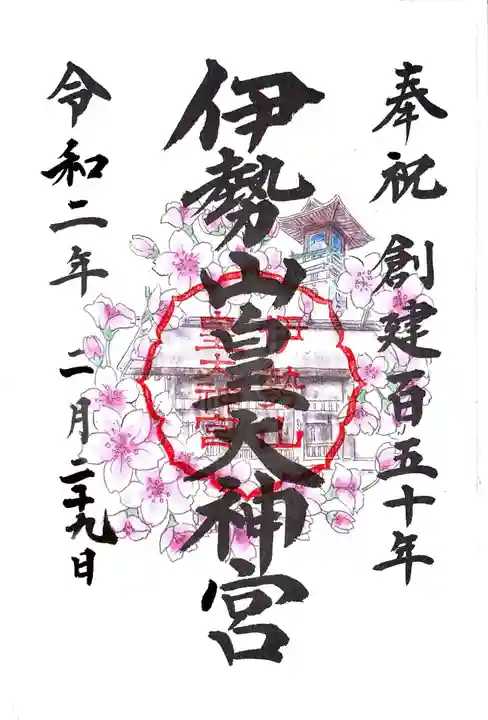 奉祝 創建百五十年
伊勢山皇大神宮
令和二年 二月二十九日